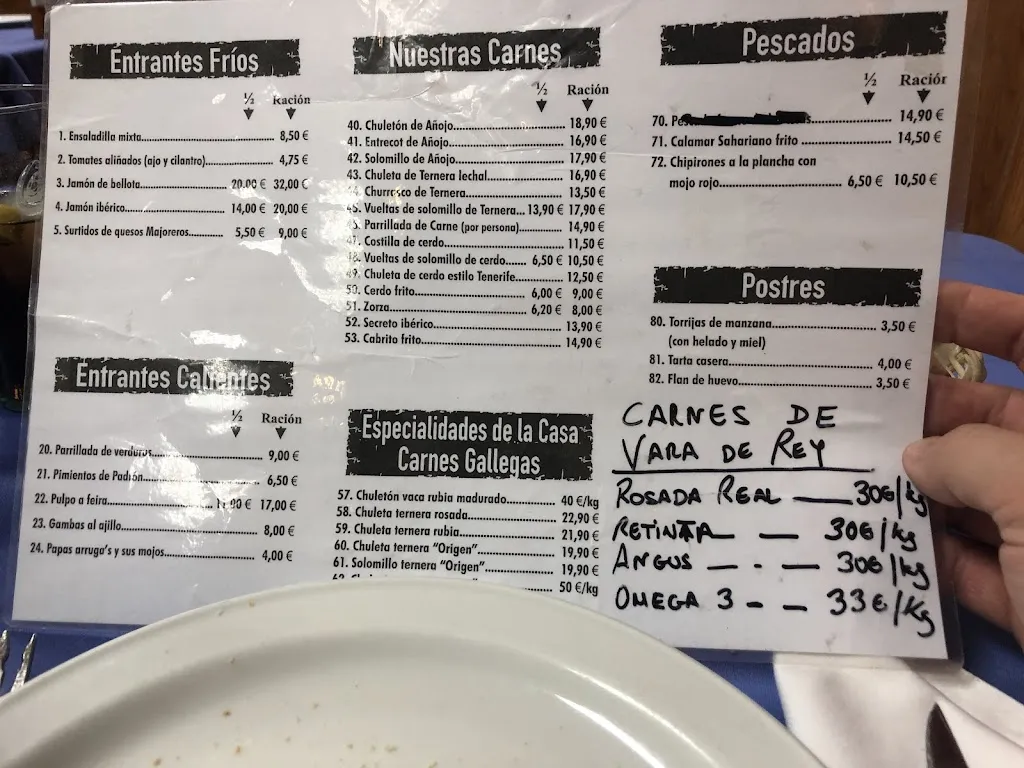 Entrantes Fríos
½ Ración
1. Ensaladilla mixta 8,50 €
2. Tomates aliñados (ajo y cilantro) 4,75 €
3. Jamón de bellota 20,00 € 32,00 €
4. Jamón ibérico 14,00 € 20,00 €
5. Surtidos de quesos Majoreros 5,50 € 9,00 €
Entrantes Calientes
½ Ración
20. Parrillada de verduras 9,00 €
21. Pimientos de Padrón 6,50 €
22. Pulpo a feira 11,00 € 17,00 €
23. Gambas al ajillo 8,00 €
24. Papas arruga's y sus mojos 4,00 €
Nuestras Carnes
½ Ración
40. Chuletón de Añojo 18,90 €
41. Entrecot de Añojo 16,90 €
42. Solomillo de Añojo 17,90 €
43. Chuleta de Ternera lechal 16,90 €
Churrasco de Ternera 13,50 €
45. Vueltas de solomillo de Ternera 13,90 € 17,90 €
Parrillada de Carne (por persona) 14,90 €
47. Costilla de cerdo 11,50 €
48. Vueltas de solomillo de cerdo 6,50 € 10,50 €
49. Chuleta de cerdo estilo Tenerife 12,50 €
50. Cerdo frito 6,00 € 9,00 €
51. Zorza 6,20 € 8,00 €
52. Secreto ibérico 13,90 €
53. Cabrito frito 14,90 €
Especialidades de la Casa
Carnes Gallegas
57. Chuletón vaca rubia madurado 40 €/kg
58. Chuleta ternera rosada 22,90 €
59. Chuleta ternera rubia 21,90 €
60. Chuleta ternera "Origen" 19,90 €
61. Solomillo ternera "Origen" 19,90 €
50 €/kg
Pescados
½ Ración
70. 14,90 €
71. Calamar Sahariano frito 14,50 €
72. Chipirones a la plancha con
mojo rojo 6,50 € 10,50 €
Postres
80. Torrijas de manzana 3,50 €
(con helado y miel)
81. Tarta casera 4,00 €
82. Flan de huevo 3,50 €
CARNES DE
VARA DE REY
ROSADA REAL — 30€/kg
RETINTA — — 30€/kg
ANGUS — - — 30€/kg
OMEGA 3 - - 33€/Kg